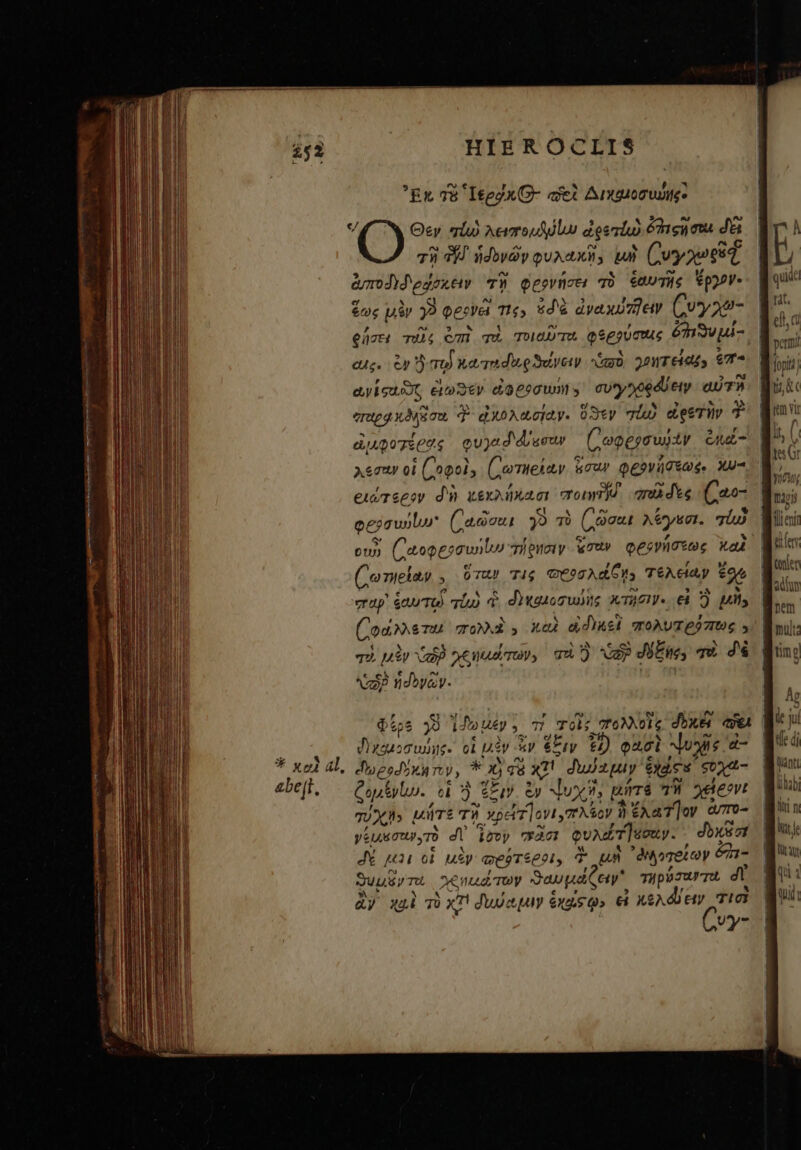 252 HIEROCLIS
Ἐκ τοῦ Ἱέρακος περὶ Δικαιοσύνης.
Ὅθεν τὴν λειπομένην ἀρετὴν ἐπιστῆσαι δεῖ
τῇ τῶν ἡδονῶν φυλακῇ, μὴ συγχωροῦσαν
ἀποδιδράσκειν τῇ φρονήσει τὸ ἑαυτῆς ἔργον.
ἕως μὲν γὰρ φρονεῖ τις, οὐδὲ ἀνακύπτειν συγχω-
ρήσει ταῖς ἐπὶ τὰ τοιαῦτα φερούσαις ἐπιθυμί-
αις. ἐν δὲ τῷ καταδαρθάνειν ὑπὸ γοητείας, ἐπ-
ανίστασθαι εἴωθεν ἀφροσύνη, συγχορεύειν αὐτῇ
παρακαλοῦσα τὴν ἀκολασίαν. ὅθεν τὴν ἀρετὴν τὴν
ἀμφοτέρας φυγαδεύουσαν σωφροσύνην ἐκά-
λεσαν οἱ σοφοὶ, σωτηρίαν οὖσαν φρονήσεως. κυ-
ριώτερον δὴ κεκλήκασι ποιητῶν παῖδες σαο-
φροσύνην· σαῶσαι γὰρ τὸ σῶσαι λέγουσι. τὴν
οὖν σαοφροσύνην τήρησιν οὖσαν φρονήσεως καὶ
σωτηρίαν, ὅταν τις προσλάβῃ, τελείαν ἔχει
παρ' ἑαυτῷ τὴν τῆς δικαιοσύνης κτῆσιν. εἰ δὲ μὴ,
σφάλλεται πολλὰ, καὶ ἀδικεῖ πολυτρόπως,
τὰ μὲν ὑπὲρ χρημάτων, τὰ δὲ ὑπὲρ δόξης, τὰ δὲ
ὑπὲρ ἡδονῶν.
Φέρε γὰρ ἴδωμεν, τί τοῖς πολλοῖς δοκεῖ περὶ
δικαιοσύνης. οἱ μὲν οὖν ἕξιν εἶναι φασὶ ψυχῆς ἀ-
* καὶ al. δωροδόκητον, * καὶ τοῦ κατὰ δύναμιν ἑκάστου στοχα-
abest. ζομένην. οἱ δὲ ἕξιν ἐν ψυχῇ, μήτε τῇ χείρονι
τύχῃ, μήτε τῇ κρείττονι, πλέον ἢ ἔλαττον ἀπο-
νέμουσαν, τὸ δ' ἴσον πᾶσι φυλάττουσαν. δοκοῦσι
δέ μοι οἱ μὲν πρότεροι, τὸν μὴ ἀλλοτρίων ἐπι-
θυμοῦντα χρημάτων θαυμάζειν· τηρήσαντα δ'
ἂν καὶ τὸ κατὰ δύναμιν ἑκάστῳ, εἰ κελεύειν τισὶ
συγ-